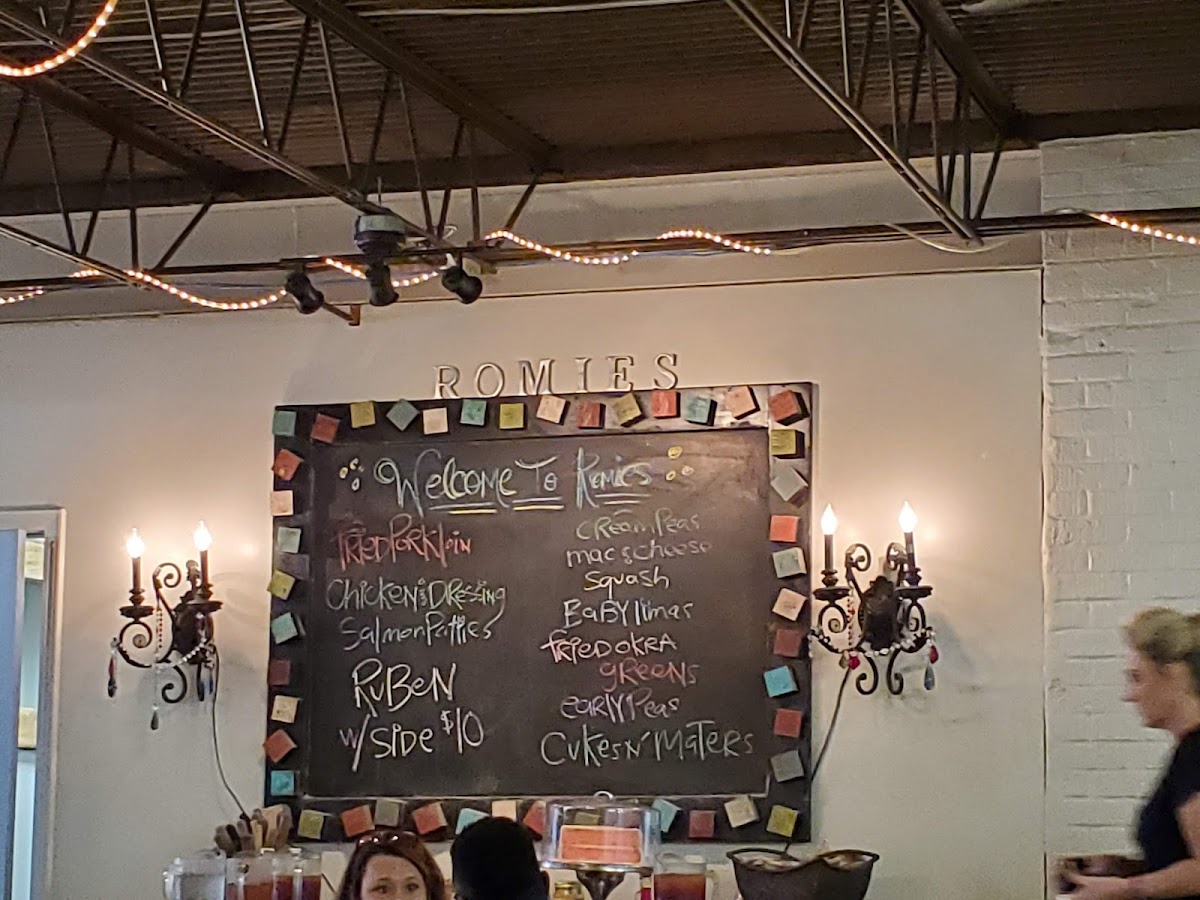 ROMIES
Welcome To Romies
Fried Pork loin
Chicken & Dressing
Salmon Patties
RuBeN
w/ Side $10
CreamPeas
mac & cheese
Squash
BaBY limas
FRIED OKRA
GREENS
earlY Peas
CukesN' MaTeRs